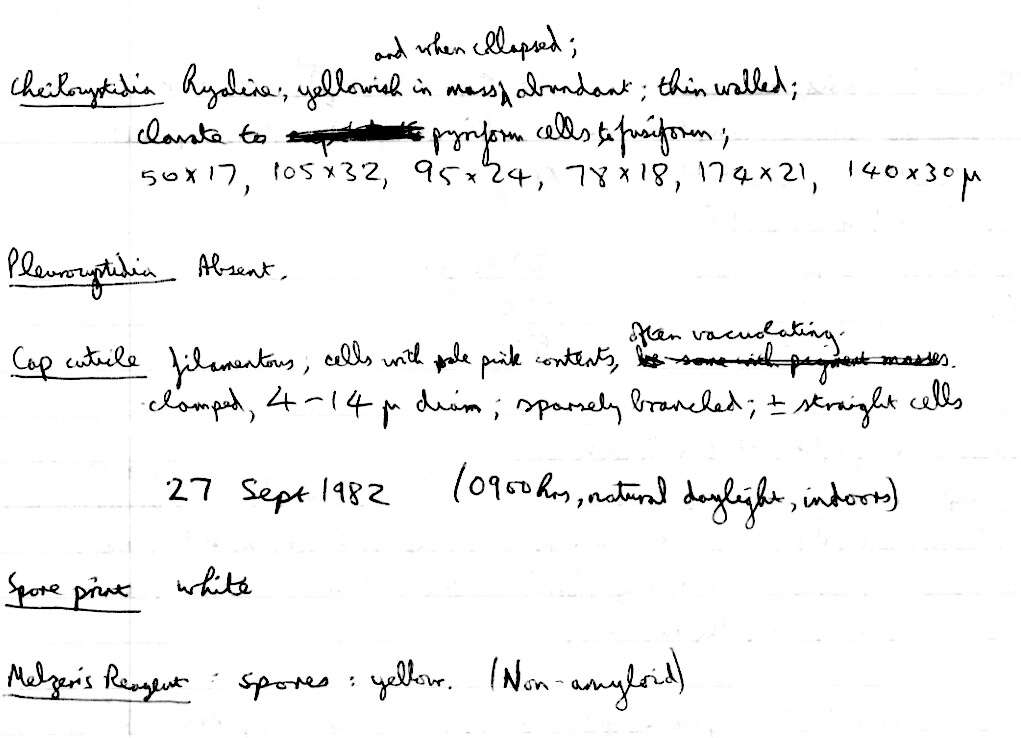 and when collapsed;
Cheilocystidia Hyaline, yellowish in mass, abundant; thin walled;
clavate to pyriform cells to fusiform;
50 x 17, 105 x 32, 95 x 24, 78 x 18, 174 x 21, 140 x 30 µ
Pleurocystidia Absent.
often vacuolating.
Cap cuticle filamentous; cells with pale pink contents, some with pigment masses.
clamped, 4-14 µ diam; sparsely branched; ± straight cells
27 Sept 1982 (0900hrs, natural daylight, indoors)
Spore print white
Melzer's Reagent : spores : yellow. (Non-amyloid)